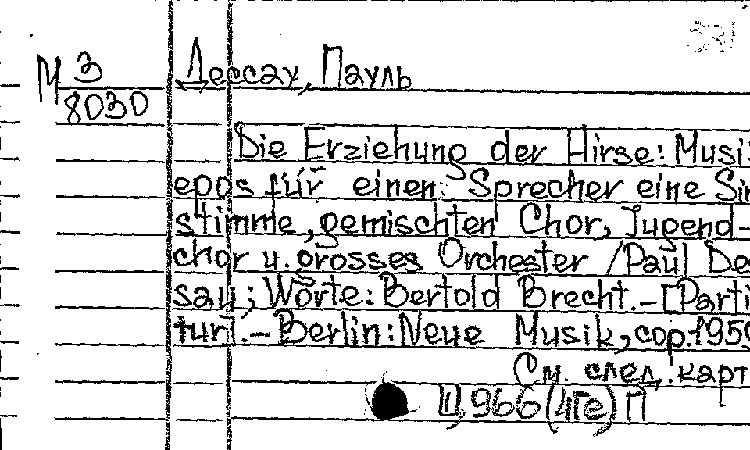 М З Дессау, Пауль
8030
Die Erziehung der Hirse: Musi
epos für einen Sprecher eine Sin
stimme, gemischten Chor, Jugend-
chor u. grosses Orchester / Paul Des
sau; Worte: Bertold Brecht. - [Parti
tur]. - Berlin: Neue Musik, cop. 1959
См. след. карт
Ц 966 (4Ге) П